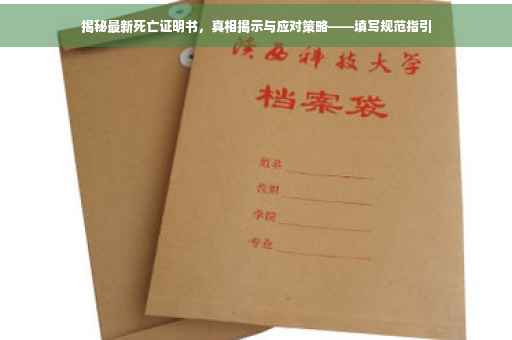 揭秘最新死亡证明书，真相揭示与应对策略——填写规范指引
陕西科技大学
档案袋
姓名
学院
专业